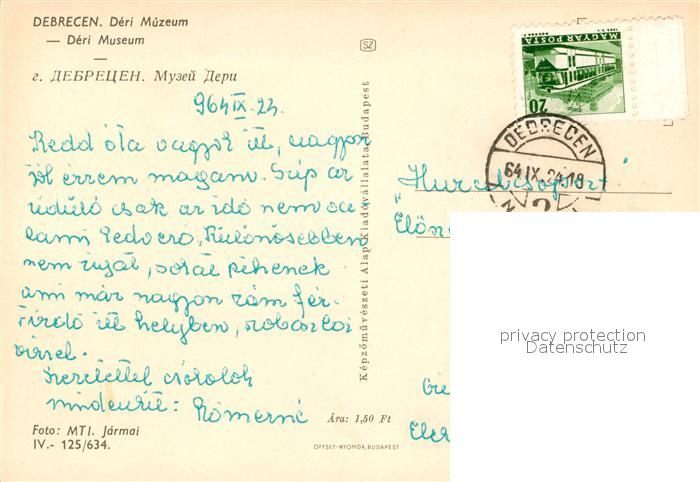 DEBRECEN. Déri Múzeum
— Déri Museum
—
г. ДЕБРЕЦЕН. Музей Дери
964 IX. 24.
Kedd óta vagyok itt, nagyon
jól érzem magam. Szép az
üdülő csak az idő nem va
lami kedvező. Különösebben
nem izgat, sokat pihenek
ami már nagyon rám fér.
Fürdő itt helyben, szoboszlói
vízzel.
Szeretettel csókolok
mindenkit: Rómerné
Foto: MTI. Jármai
IV.- 125/634.
Képzőművészeti Alap Kiadóvállalata, Budapest
SZ
Ára: 1,50 Ft
OFFSET-NYOMDA, BUDAPEST
MAGYAR POSTA
20
DEBRECEN
64 IX. 24.18
2
privacy protection
Datenschutz